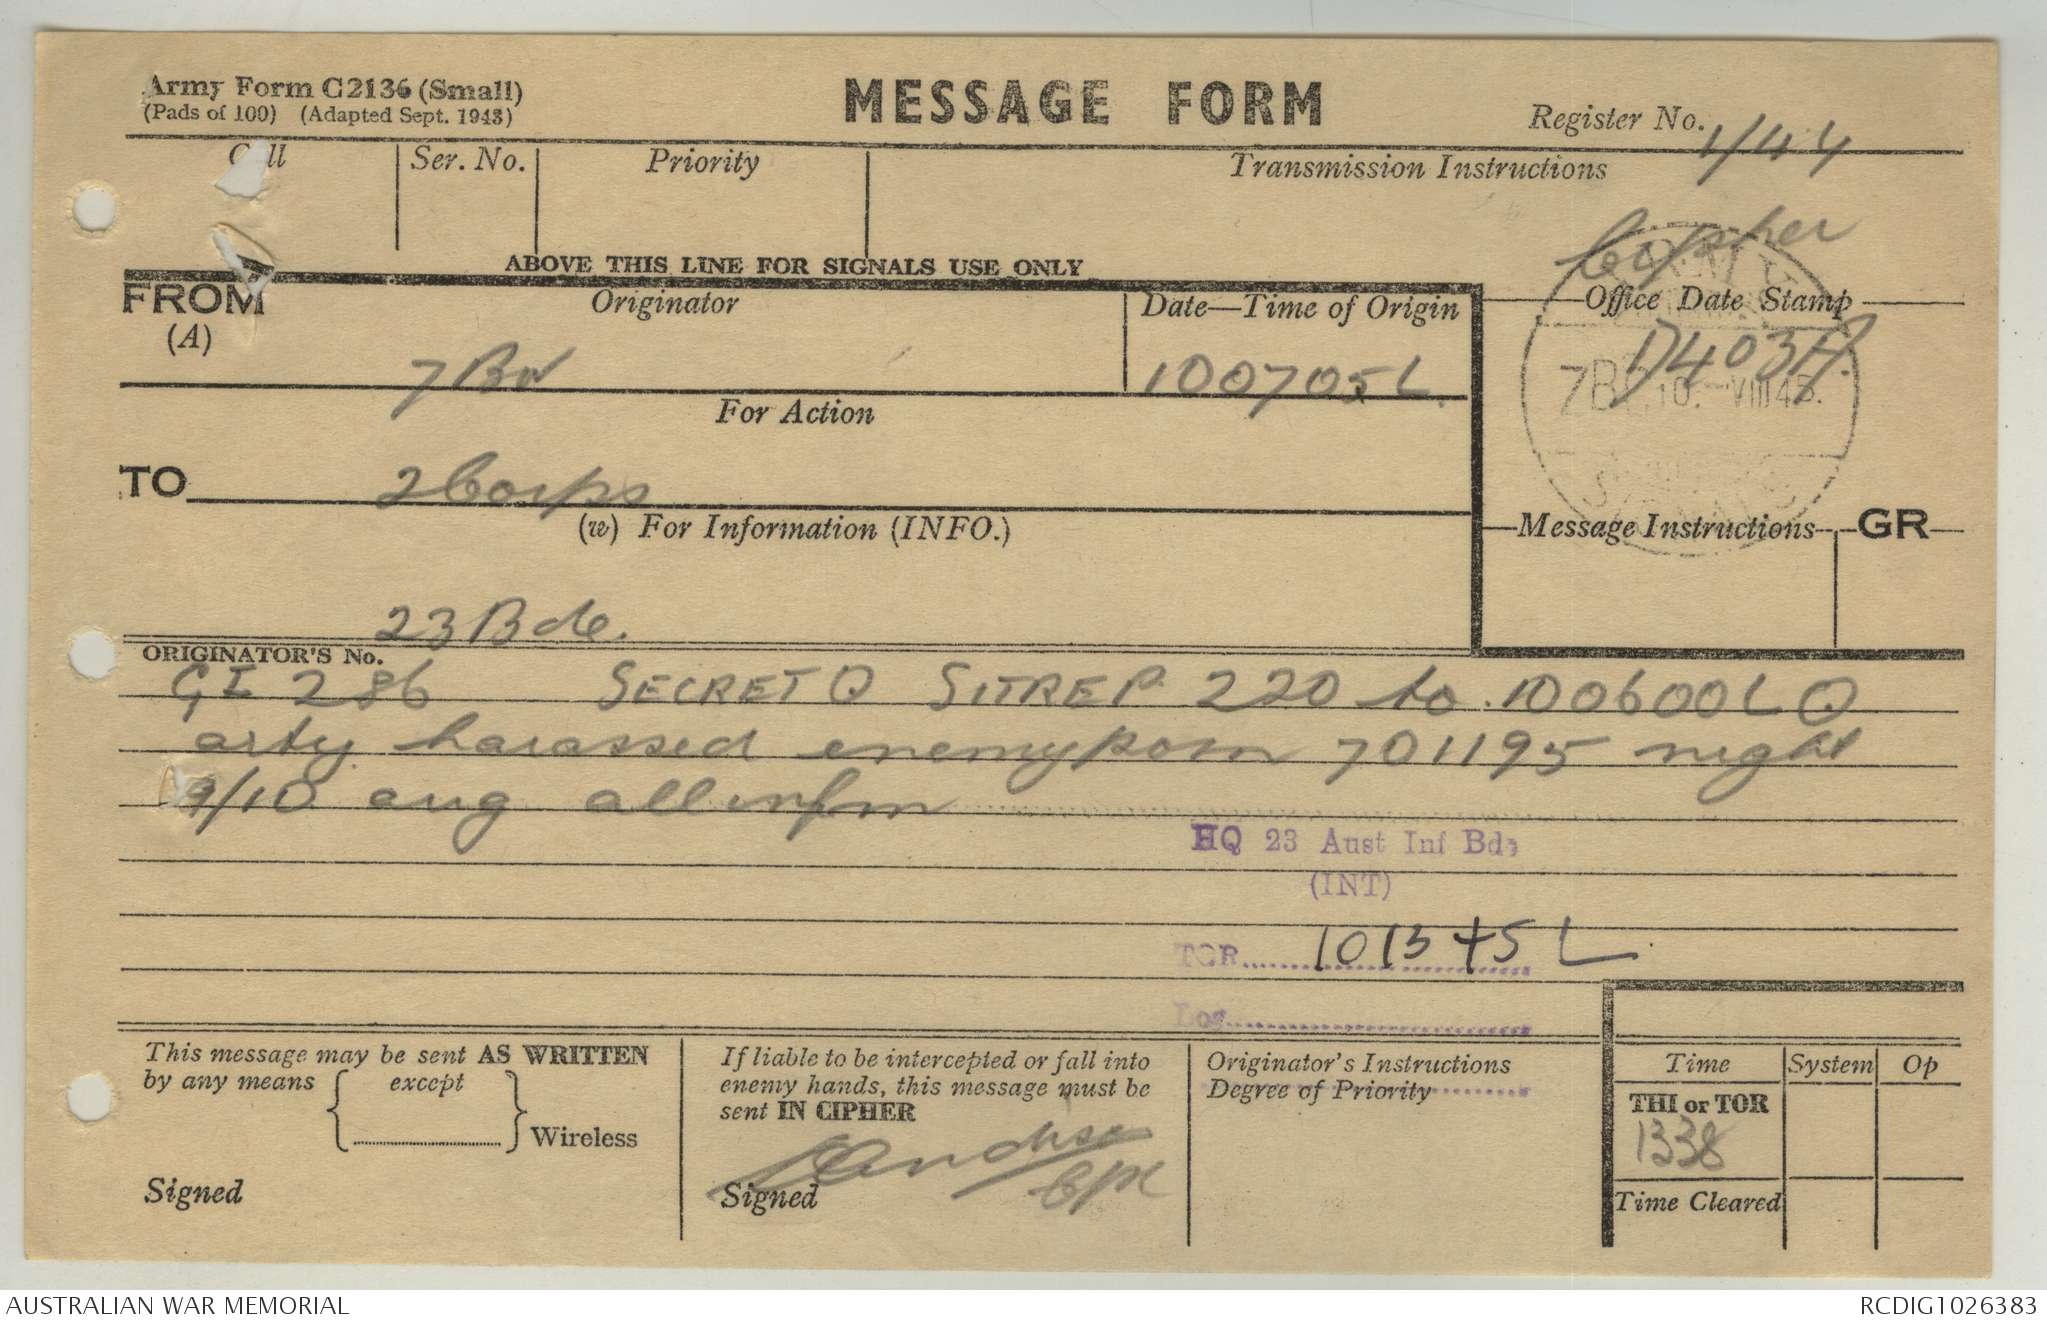 Army Form C2136 (Small)
(Pads of 100) (Adapted Sept. 1943)
MESSAGE FORM
Register No. 1/44
Call Ser. No. Priority Transmission Instructions
Cypher
ABOVE THIS LINE FOR SIGNALS USE ONLY
FROM Originator Date—Time of Origin Office Date Stamp
(A)
7 Bn 100705L. D403A.
10.-VIII45.
For Action
TO 2 Corps
(w) For Information (INFO.) Message Instructions GR
23 Bde.
ORIGINATOR'S No.
GI 286 SECRET Q SITREP 220 to 100600L Q
arty harassed enemy posn 701195 night
9/10 aug all infm
HQ 23 Aust Inf Bde
(INT)
TOR 101345 L
Log
This message may be sent AS WRITTEN
by any means except
Wireless
Signed
If liable to be intercepted or fall into
enemy hands, this message must be
sent IN CIPHER
Signed
Originator's Instructions
Degree of Priority
Time System Op
THI or TOR
1338
Time Cleared
AUSTRALIAN WAR MEMORIAL RCDIG1026383